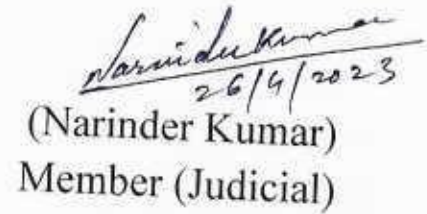 Narinder Kumar
26/4/2023
(Narinder Kumar)
Member (Judicial)